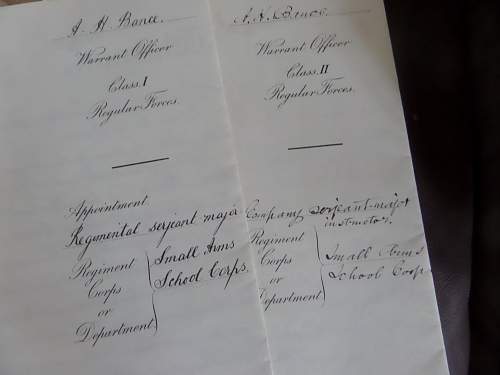 A. H. Bance.
Warrant Officer
Class I
Regular Forces.
Appointment
Regimental serjeant major
Regiment
Corps
or
Department
Small Arms
School Corps.
A. H. Bance.
Warrant Officer
Class II
Regular Forces.
Company serjeant-major
instructor.
Regiment
Corps
or
Department
Small Arms
School Corps